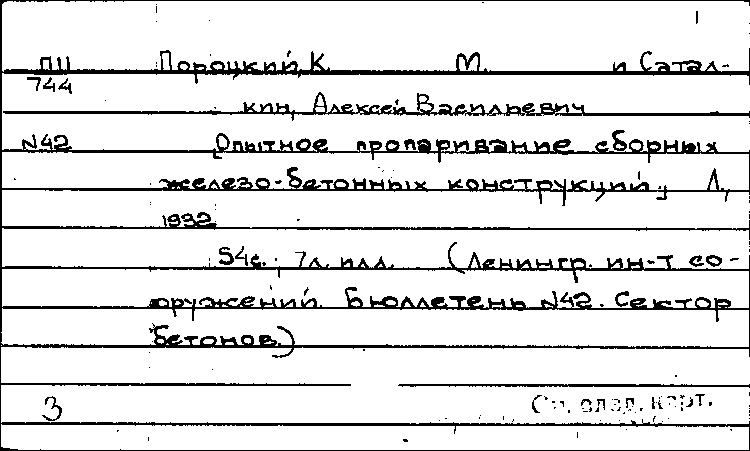 1
ПII Пороцкий, К. М. и Сатал-
744
кин, Алексей Васильевич
N42 [Опытное пропаривание сборных
железо-бетонных конструкций], Л.,
1932
54с.; 7л. илл. (Ленингр. ин-т со-
оружений. Бюллетень N42. Сектор
бетонов.)
3 См. след. карт.